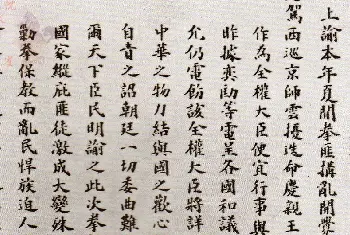 上諭本年夏間拳匪搆亂開釁
駕西巡京師雲擾迭命慶親王
作為全權大臣便宜行事與
昨據奕劻等電呈各國和議
允仍電飭該全權大臣將詳
中華之物力結與國之歡心
自責之詔朝廷一切委曲難
爾天下臣民明諭之此次拳
國家縱庇匪徒激成大變殊
勦拳保教而亂民悍族迫人